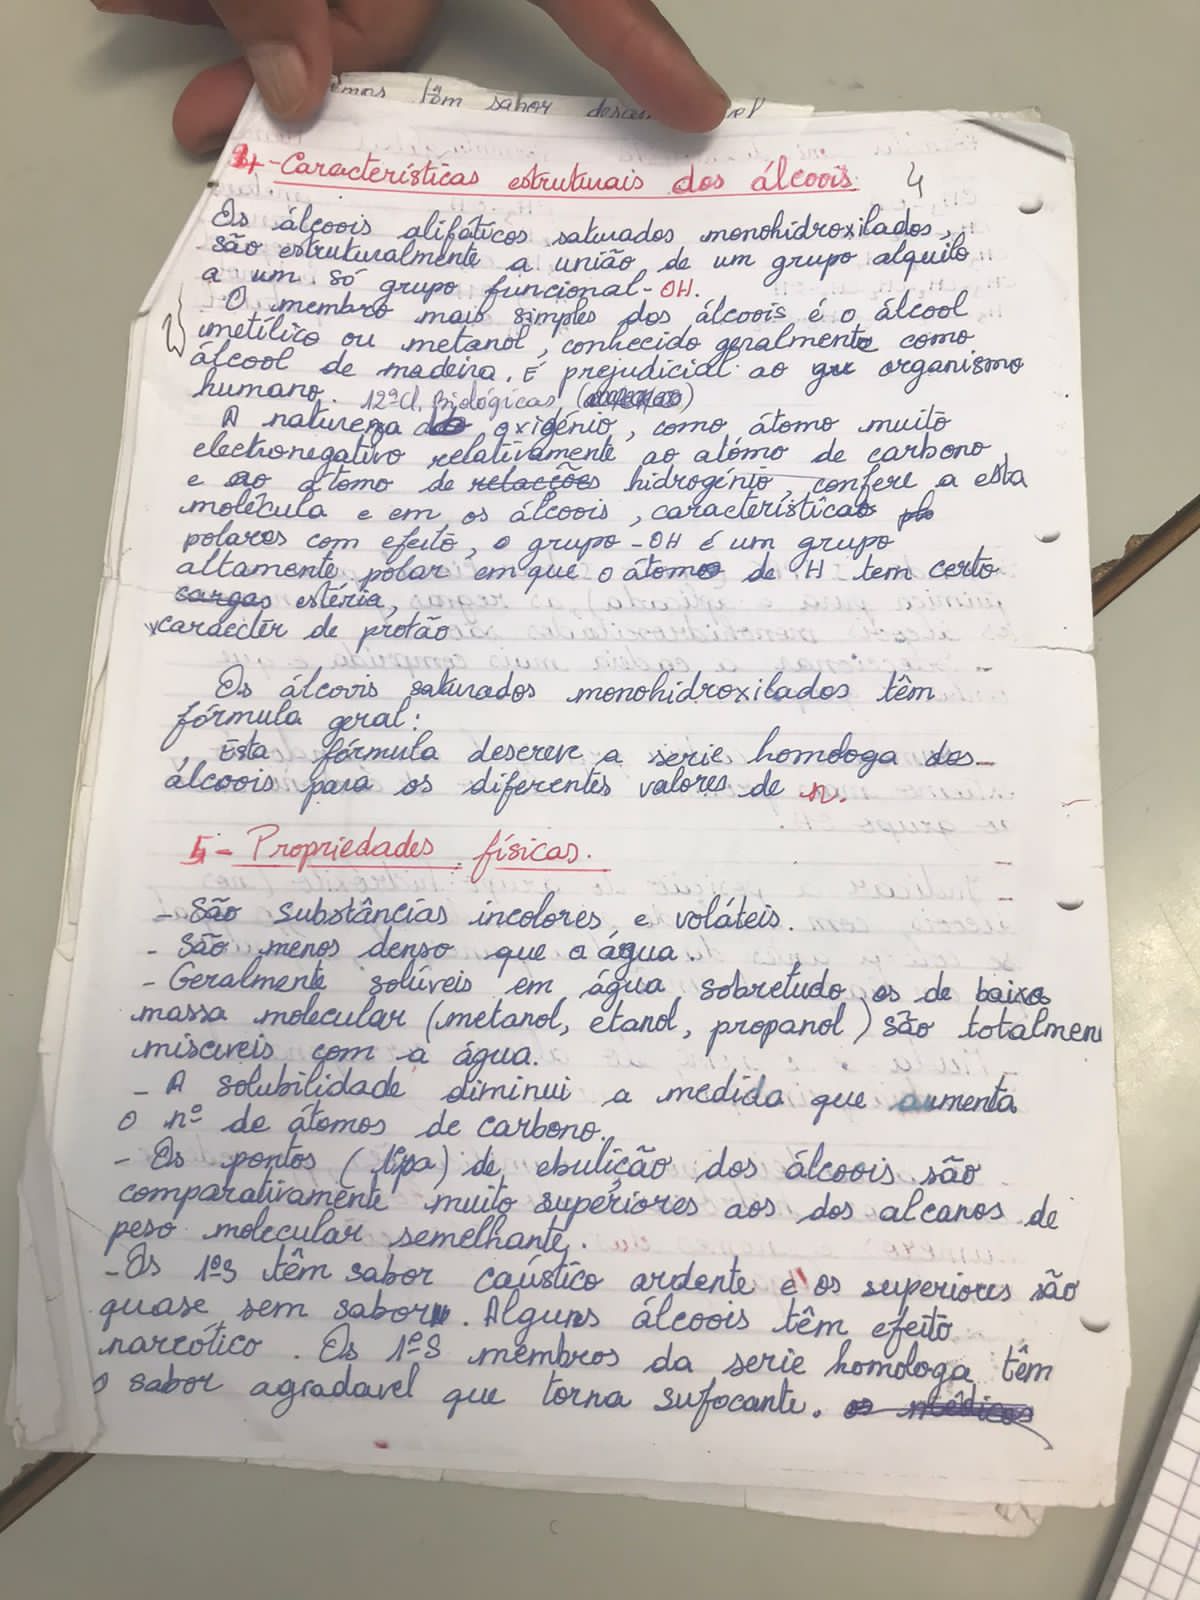 têm sabor
4-Características estruturais dos álcoois. 4
Os álcoois alifáticos saturados monohidroxilados,
são estruturalmente a união de um grupo alquilo
a um só grupo funcional-OH.
O membro mais simples dos álcoois é o álcool
metílico ou metanol, conhecido geralmente como
álcool de madeira. É prejudicial ao organismo
humano. 12ªCl. Biológicas
A natureza do oxigénio, como átomo muito
electronegativo relativamente ao atómo de carbono
e ao átomo de relacções hidrogénio, confere a esta
molécula e em os álcoois, características
polares com efeito, o grupo-OH é um grupo
altamente polar em que o átomo de H tem certo
cargas estéria,
caraecter de protão
Os álcoois saturados monohidroxilados têm
fórmula geral:
Esta fórmula descreve a serie homologa dos
álcoois para os diferentes valores de n.
5- Propriedades físicas.
- São substâncias incolores e voláteis.
- São menos denso que a água.
- Geralmente solúveis em água sobretudo os de baixa
massa molecular (metanol, etanol, propanol) são totalmen
miscíveis com a água.
- A solubilidade diminui a medida que aumenta
o nº de átomos de carbono.
- Os pontos de ebulição dos álcoois são
comparativamente muito superiores aos dos alcanos de
peso molecular semelhante.
- Os 1ºs têm sabor caústico ardente e os superiores são
quase sem sabor. Alguns álcoois têm efeito
narcótico. Os 1ºs membros da serie homologa têm
o sabor agradavel que torna sufocante. os médicos